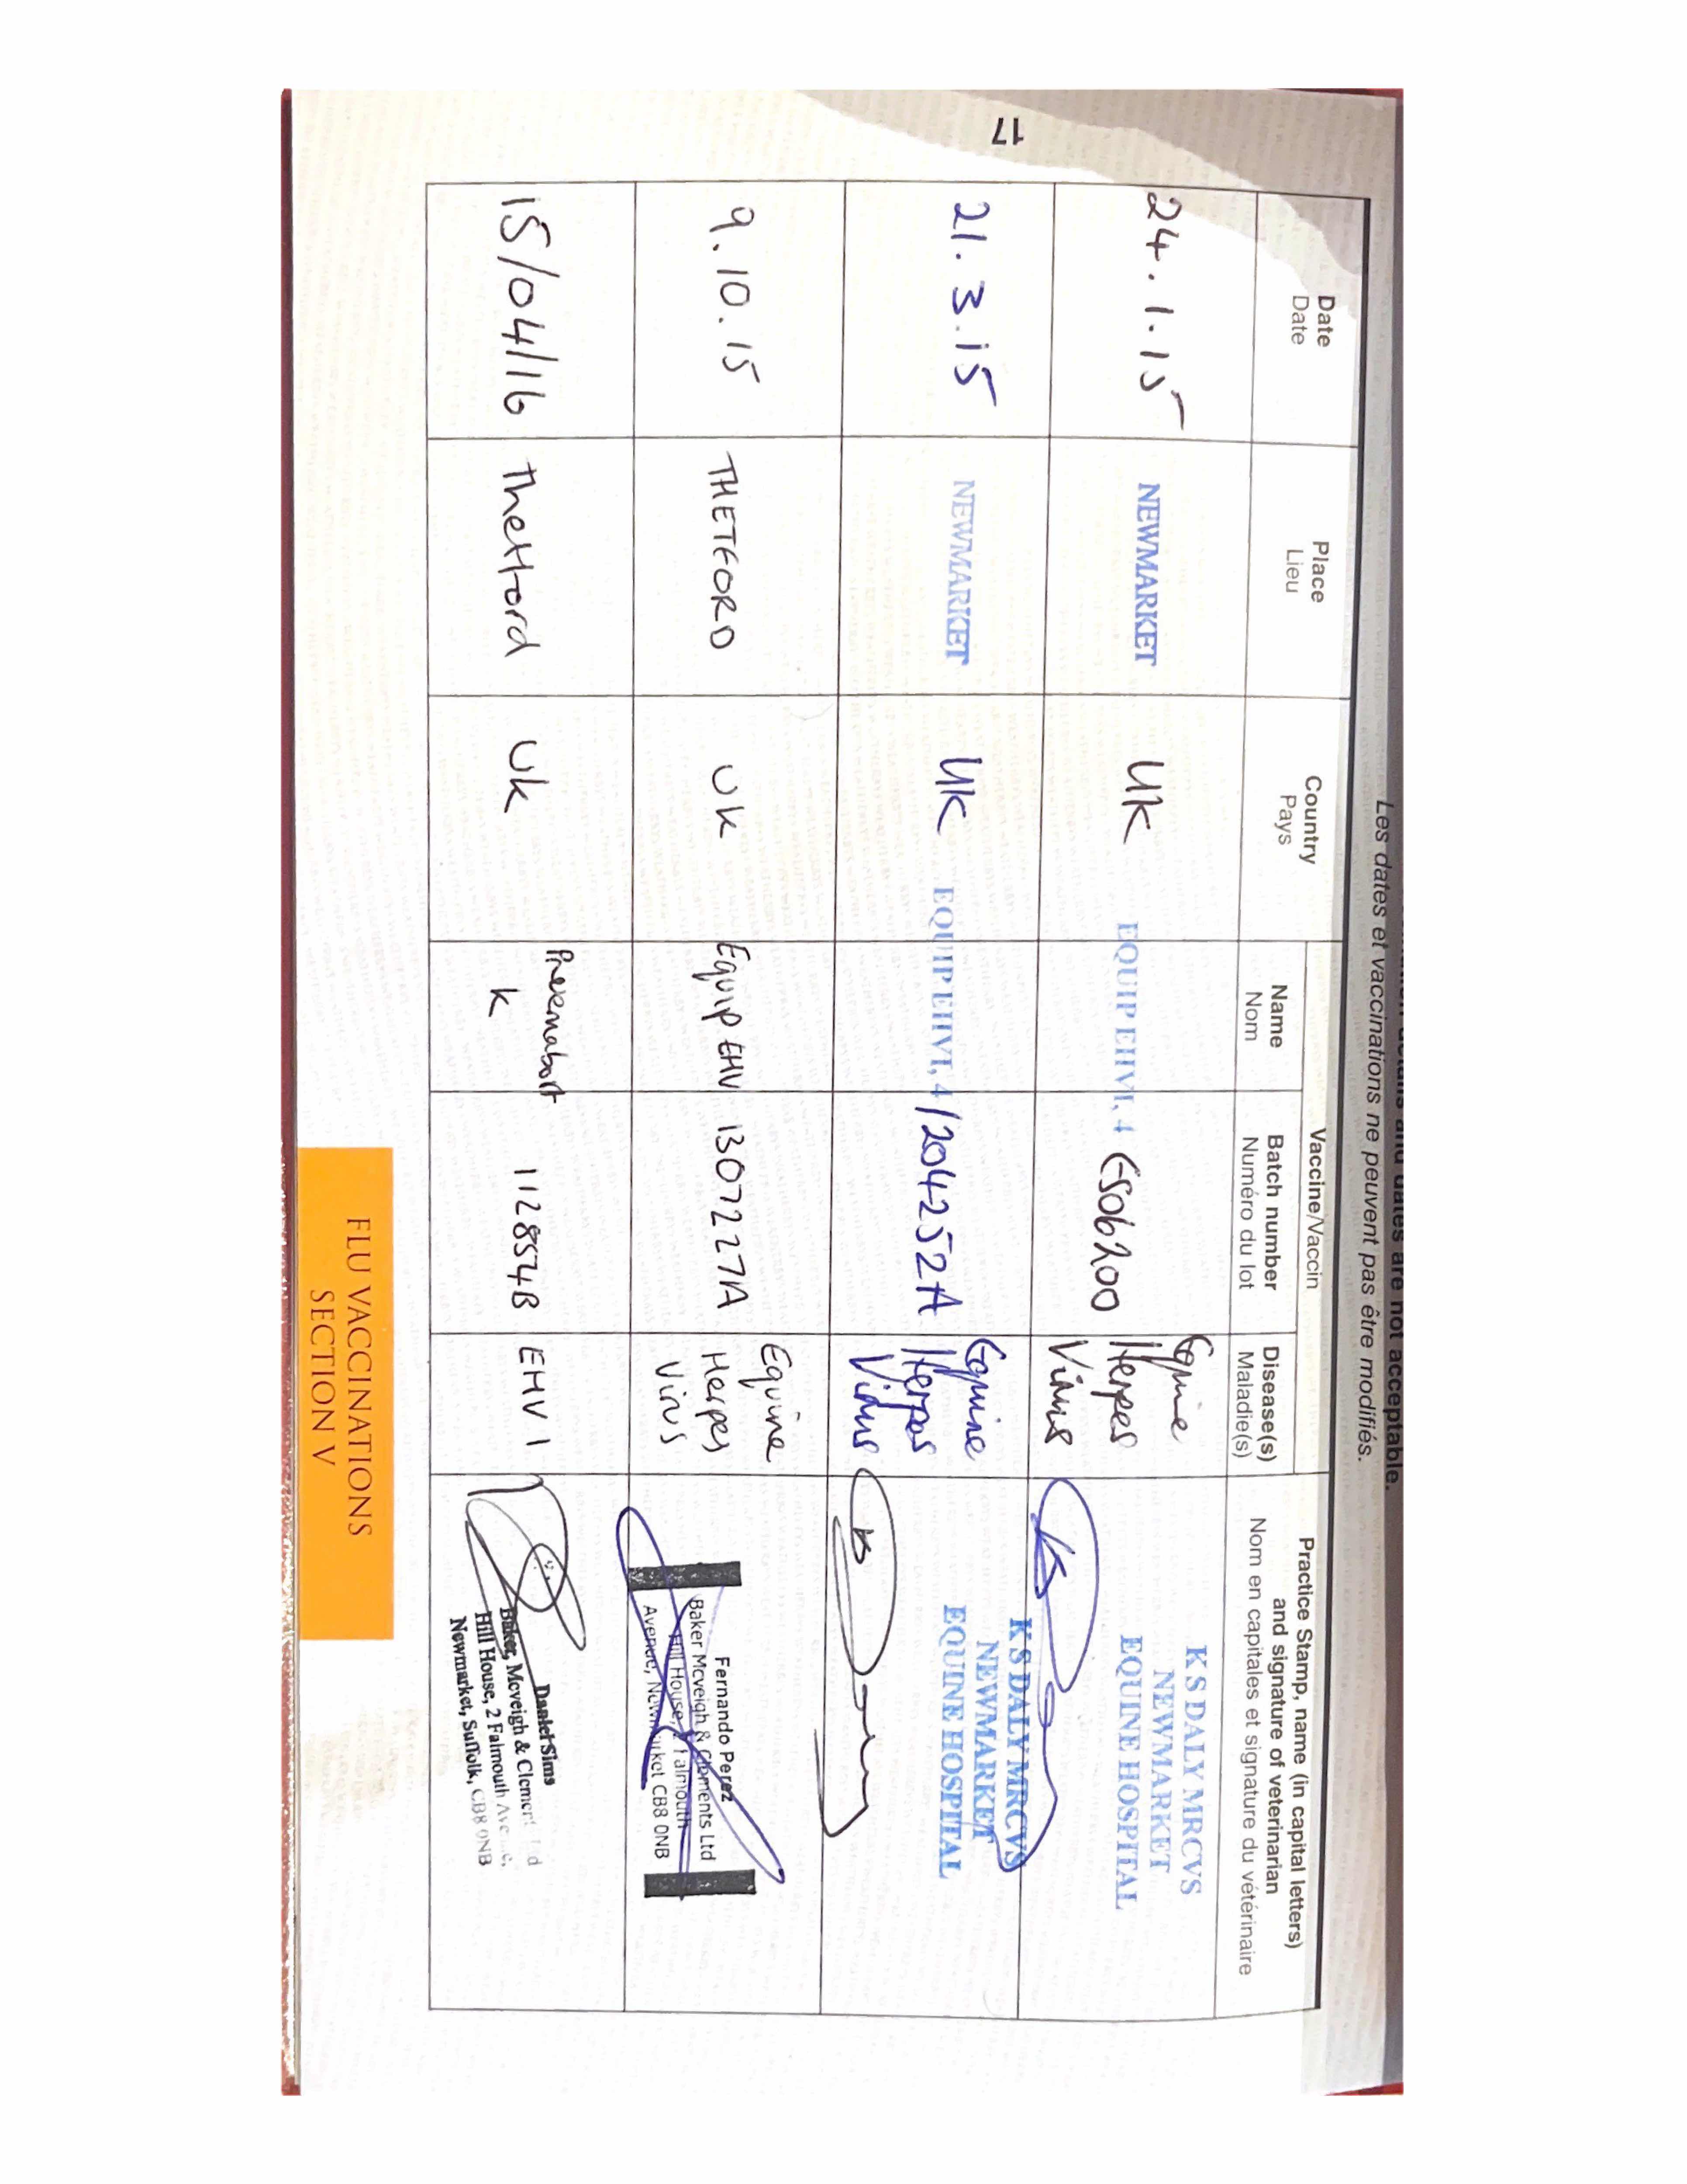 are not acceptable.
Les dates et vaccinations ne peuvent pas être modifiés.
Date
Date
Place
Lieu
Country
Pays
Vaccine/Vaccin
Name
Nom
Batch number
Numéro du lot
Disease(s)
Maladie(s)
Practice Stamp, name (in capital letters)
and signature of veterinarian
Nom en capitales et signature du vétérinaire
24.1.15
NEWMARKET
UK
EQUIP EHV1, 4
Equine
Herpes
Virus
K S DALY MRCVS
NEWMARKET
EQUINE HOSPITAL
21.3.15
NEWMARKET
UK
EQUIP EHV1, 4/204252A
Equine
Herpes
Virus
K S DALY MRCVS
NEWMARKET
EQUINE HOSPITAL
9.10.15
THETFORD
UK
Equip EHV
1307227A
Equine
Herpes
Virus
Fernando Perez
Baker Mcveigh & Clements Ltd
Hill House, 2 Falmouth
Avenue, Newmarket CB8 0NB
15/04/16
Thetford
UK
Prevenabort
K
112854B
EHV 1
Daniel Sims
Baker, Mcveigh & Clement Ltd
Hill House, 2 Falmouth Avenue,
Newmarket, Suffolk, CB8 0NB
17
FLU VACCINATIONS
SECTION V